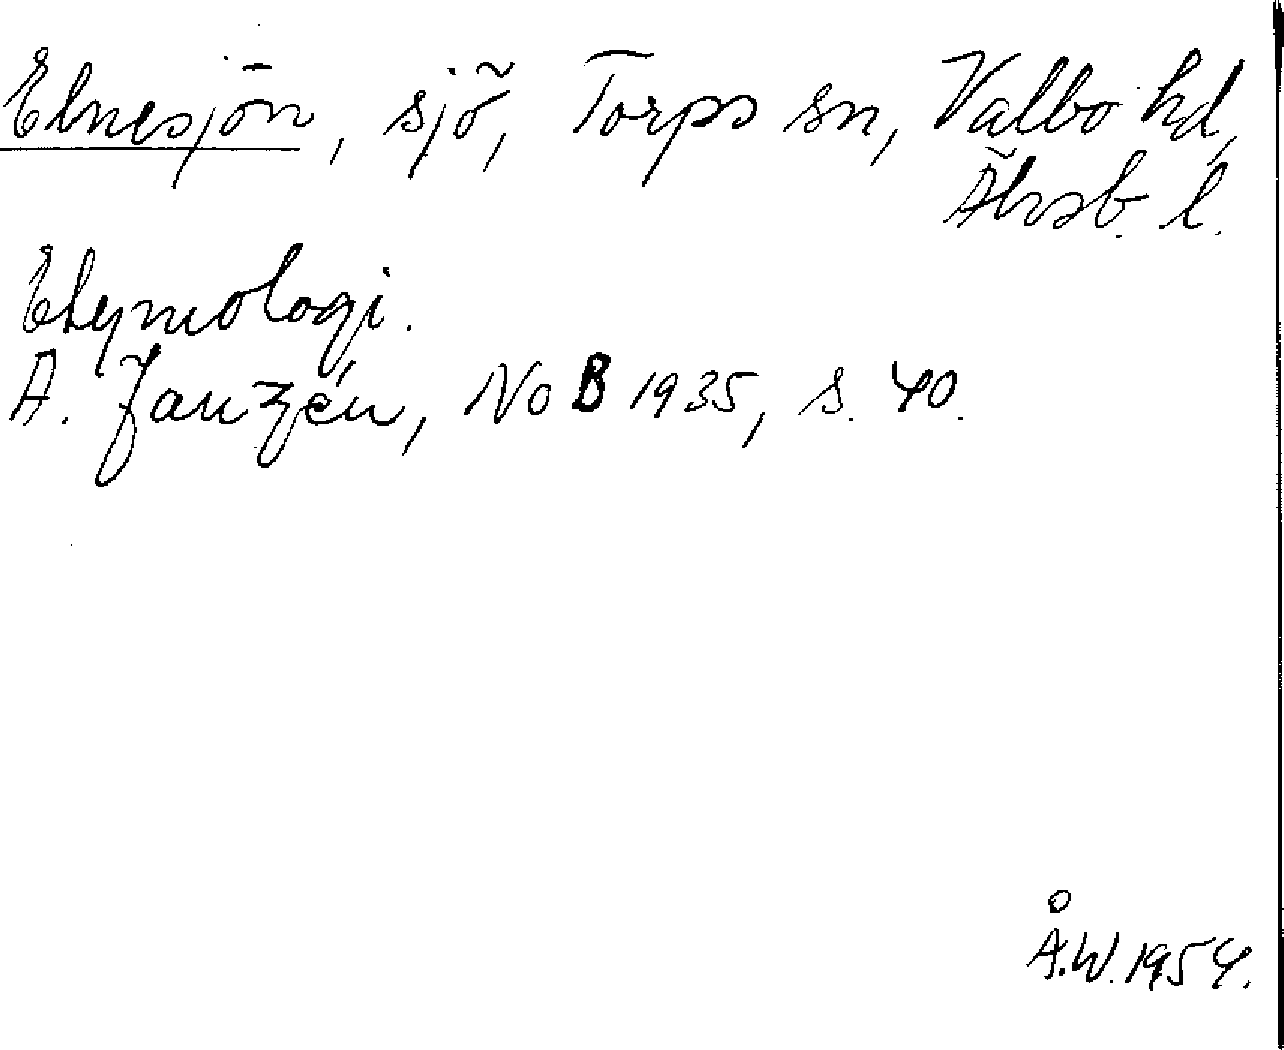 Elnesjön, sjö, Torps sn, Valbo hd,
Älvsb. l.
Etymologi.
A. Janzén, NoB 1935, s. 40.
Å.W. 1954.